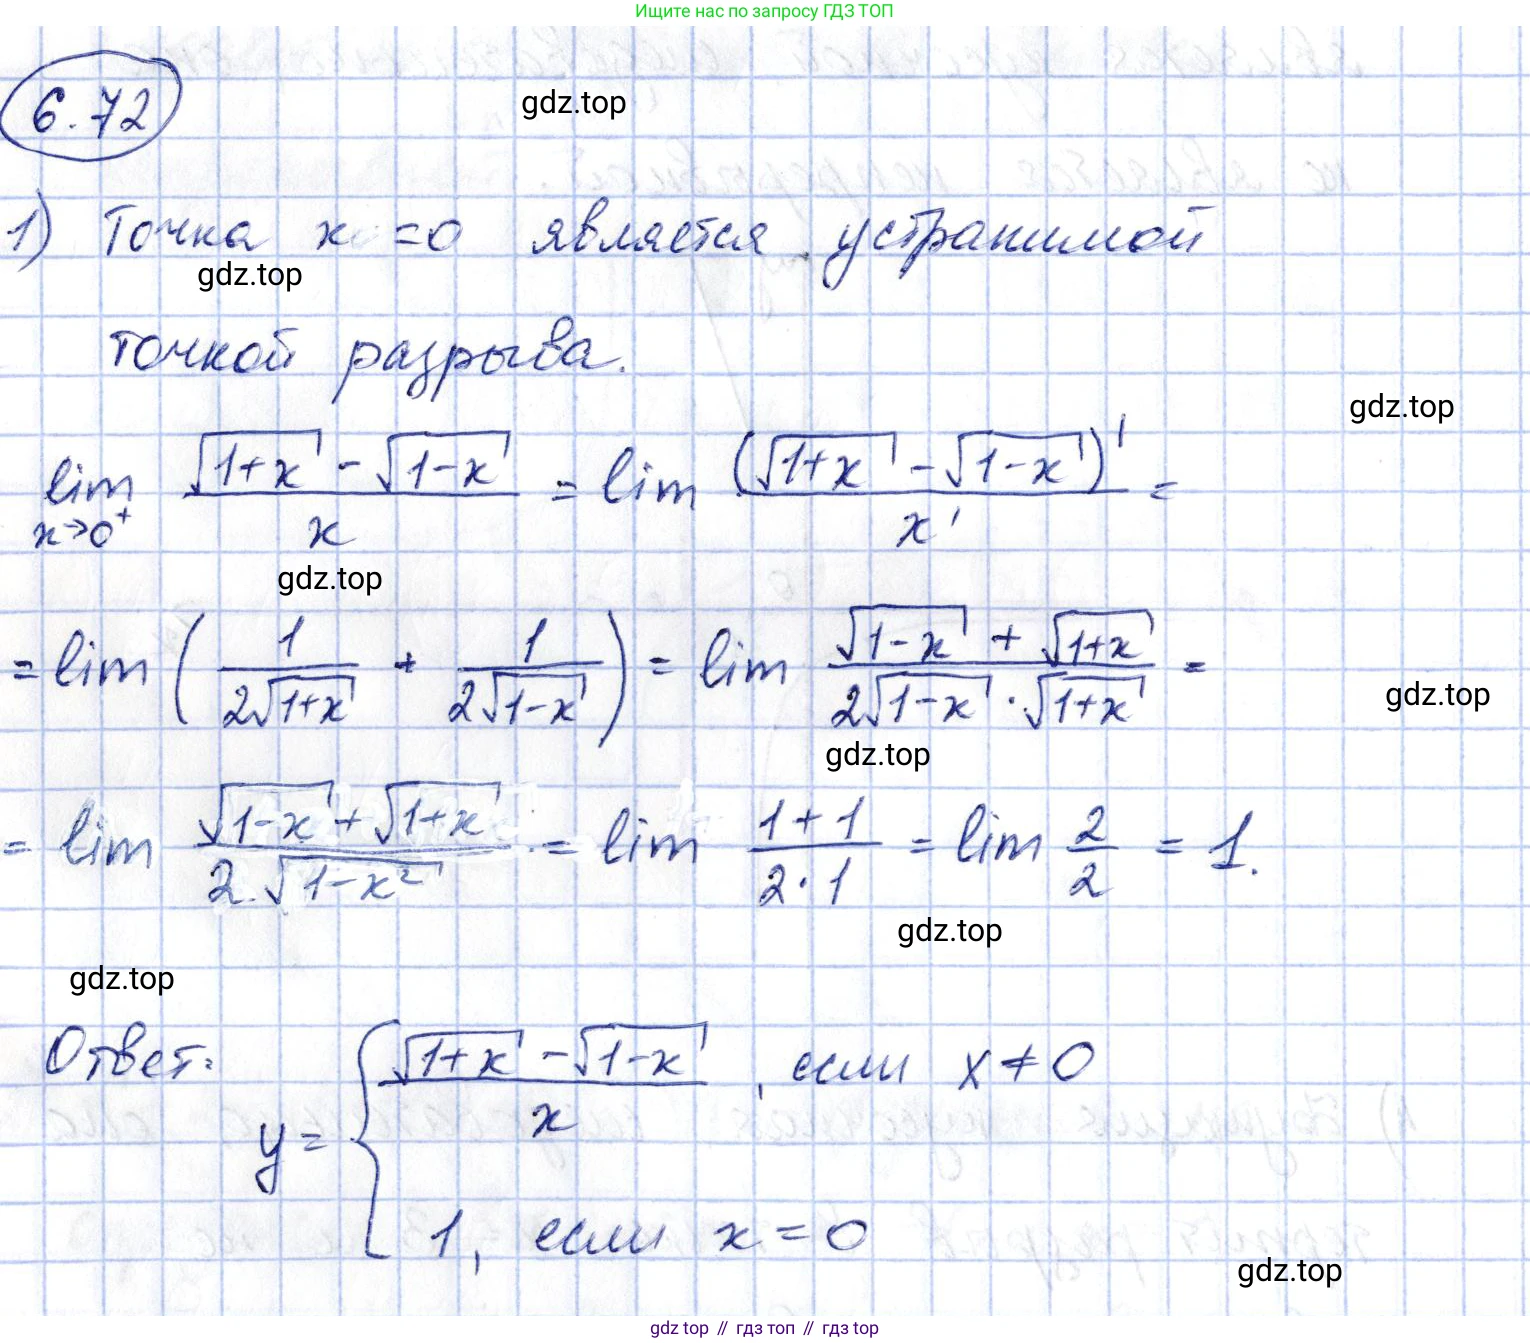 Ищите нас по запросу ГДЗ ТОП
6.72
gdz.top
1) Точка x = 0 является устранимой
gdz.top
точкой разрыва.
gdz.top
lim x→0⁺ (√(1+x) - √(1-x))/x = lim (√(1+x) - √(1-x))'/x' =
gdz.top
= lim (1/(2√(1+x)) + 1/(2√(1-x))) = lim (√(1-x) + √(1+x))/(2√(1-x) · √(1+x)) =
gdz.top
gdz.top
= lim (√(1-x) + √(1+x))/(2·√(1-x²)) = lim (1+1)/(2·1) = lim 2/2 = 1.
gdz.top
gdz.top
Ответ: y = { (√(1+x) - √(1-x))/x, если x ≠ 0
1, если x = 0
gdz.top
gdz top // гдз топ // gdz top